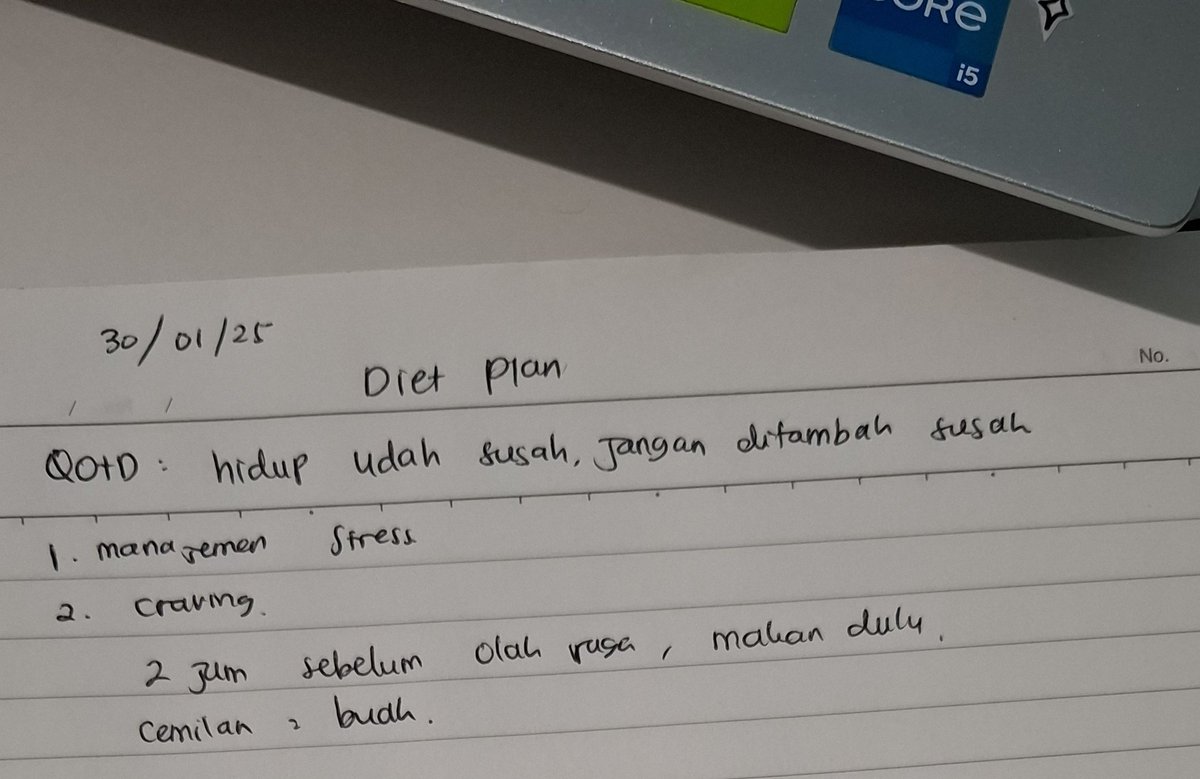 CORE
i5
30/01/25
Diet Plan
No.
QOTD : hidup udah susah, Jangan ditambah susah
1. manajemen stress
2. craving.
2 jam sebelum olah raga, makan dulu.
cemilan : buah.